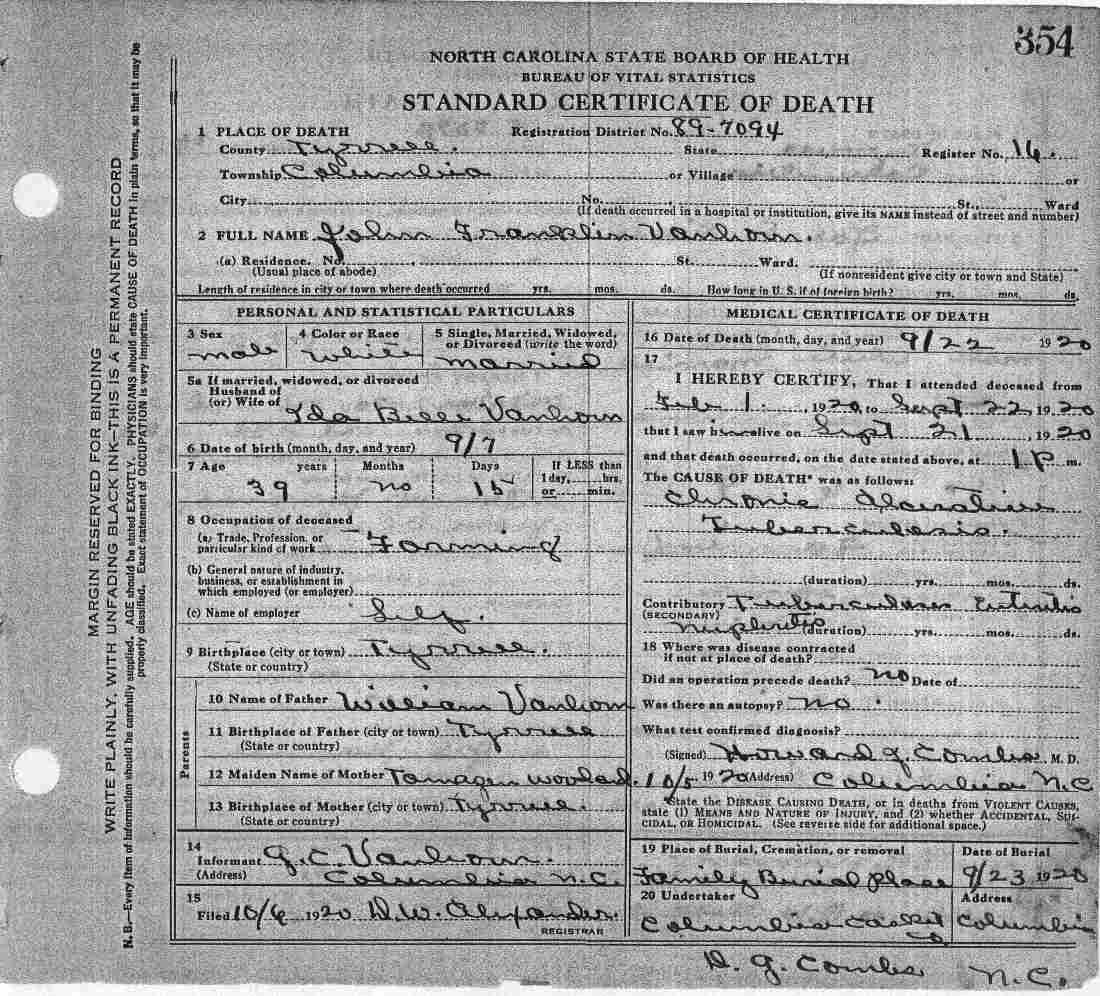 354
NORTH CAROLINA STATE BOARD OF HEALTH
BUREAU OF VITAL STATISTICS
STANDARD CERTIFICATE OF DEATH
1 PLACE OF DEATH Registration District No. 89-7094
County Tyrrell. State Register No. 16.
Township Columbia or Village or
City No. St., Ward
(If death occurred in a hospital or institution, give its NAME instead of street and number)
2 FULL NAME John Franklin Vanhorn.
(a) Residence. No. St. Ward.
(Usual place of abode) (If nonresident give city or town and State)
Length of residence in city or town where death occurred yrs. mos. ds. How long in U. S. if of foreign birth? yrs. mos. ds.
PERSONAL AND STATISTICAL PARTICULARS
3 Sex 4 Color or Race 5 Single, Married, Widowed,
or Divorced (write the word)
male white married
5a If married, widowed, or divorced
Husband of
(or) Wife of Ida Belle Vanhorn
6 Date of birth (month, day, and year) 9/7
7 Age years Months Days If LESS than
1 day, hrs.
or min.
39 no 15
8 Occupation of deceased
(a) Trade, Profession, or
particular kind of work Farming
(b) General nature of industry,
business, or establishment in
which employed (or employer)
(c) Name of employer Self.
9 Birthplace (city or town) Tyrrell.
(State or country)
Parents
10 Name of Father William Vanhorn
11 Birthplace of Father (city or town) Tyrrell
(State or country)
12 Maiden Name of Mother
13 Birthplace of Mother (city or town) Tyrrell.
(State or country)
14
Informant G. C. Vanhorn.
(Address) Columbia N.C.
15
Filed 10/6 1920 D.W. Alexander.
REGISTRAR
MEDICAL CERTIFICATE OF DEATH
16 Date of Death (month, day, and year) 9/22 1920
17
I HEREBY CERTIFY, That I attended deceased from
Feb 1. , 1920, to Sept 22, 1920
that I saw him alive on Sept 21 , 1920
and that death occurred, on the date stated above, at 1 P m.
The CAUSE OF DEATH* was as follows:
Chronic
Tuberculosis.
(duration) yrs. mos. ds.
Contributory Tuberculosis
(SECONDARY)
Nephritis (duration) yrs. mos. ds.
18 Where was disease contracted
if not at place of death?
Did an operation precede death? no Date of
Was there an autopsy? no.
What test confirmed diagnosis?
(Signed) Howard J. Combs M. D.
10/5 1920 (Address) Columbia N.C
*State the DISEASE CAUSING DEATH, or in deaths from VIOLENT CAUSES,
state (1) MEANS AND NATURE OF INJURY, and (2) whether ACCIDENTAL, SUI-
CIDAL, OR HOMICIDAL. (See reverse side for additional space.)
19 Place of Burial, Cremation, or removal Date of Burial
Family Burial place 9/23 1920
20 Undertaker Address
Columbia Casket Co Columbia
D. G. Combs N.C.
MARGIN RESERVED FOR BINDING
WRITE PLAINLY, WITH UNFADING BLACK INK—THIS IS A PERMANENT RECORD
N. B.—Every item of information should be carefully supplied. AGE should be stated EXACTLY. PHYSICIANS should state CAUSE OF DEATH in plain terms, so that it may be
properly classified. Exact statement of OCCUPATION is very important.